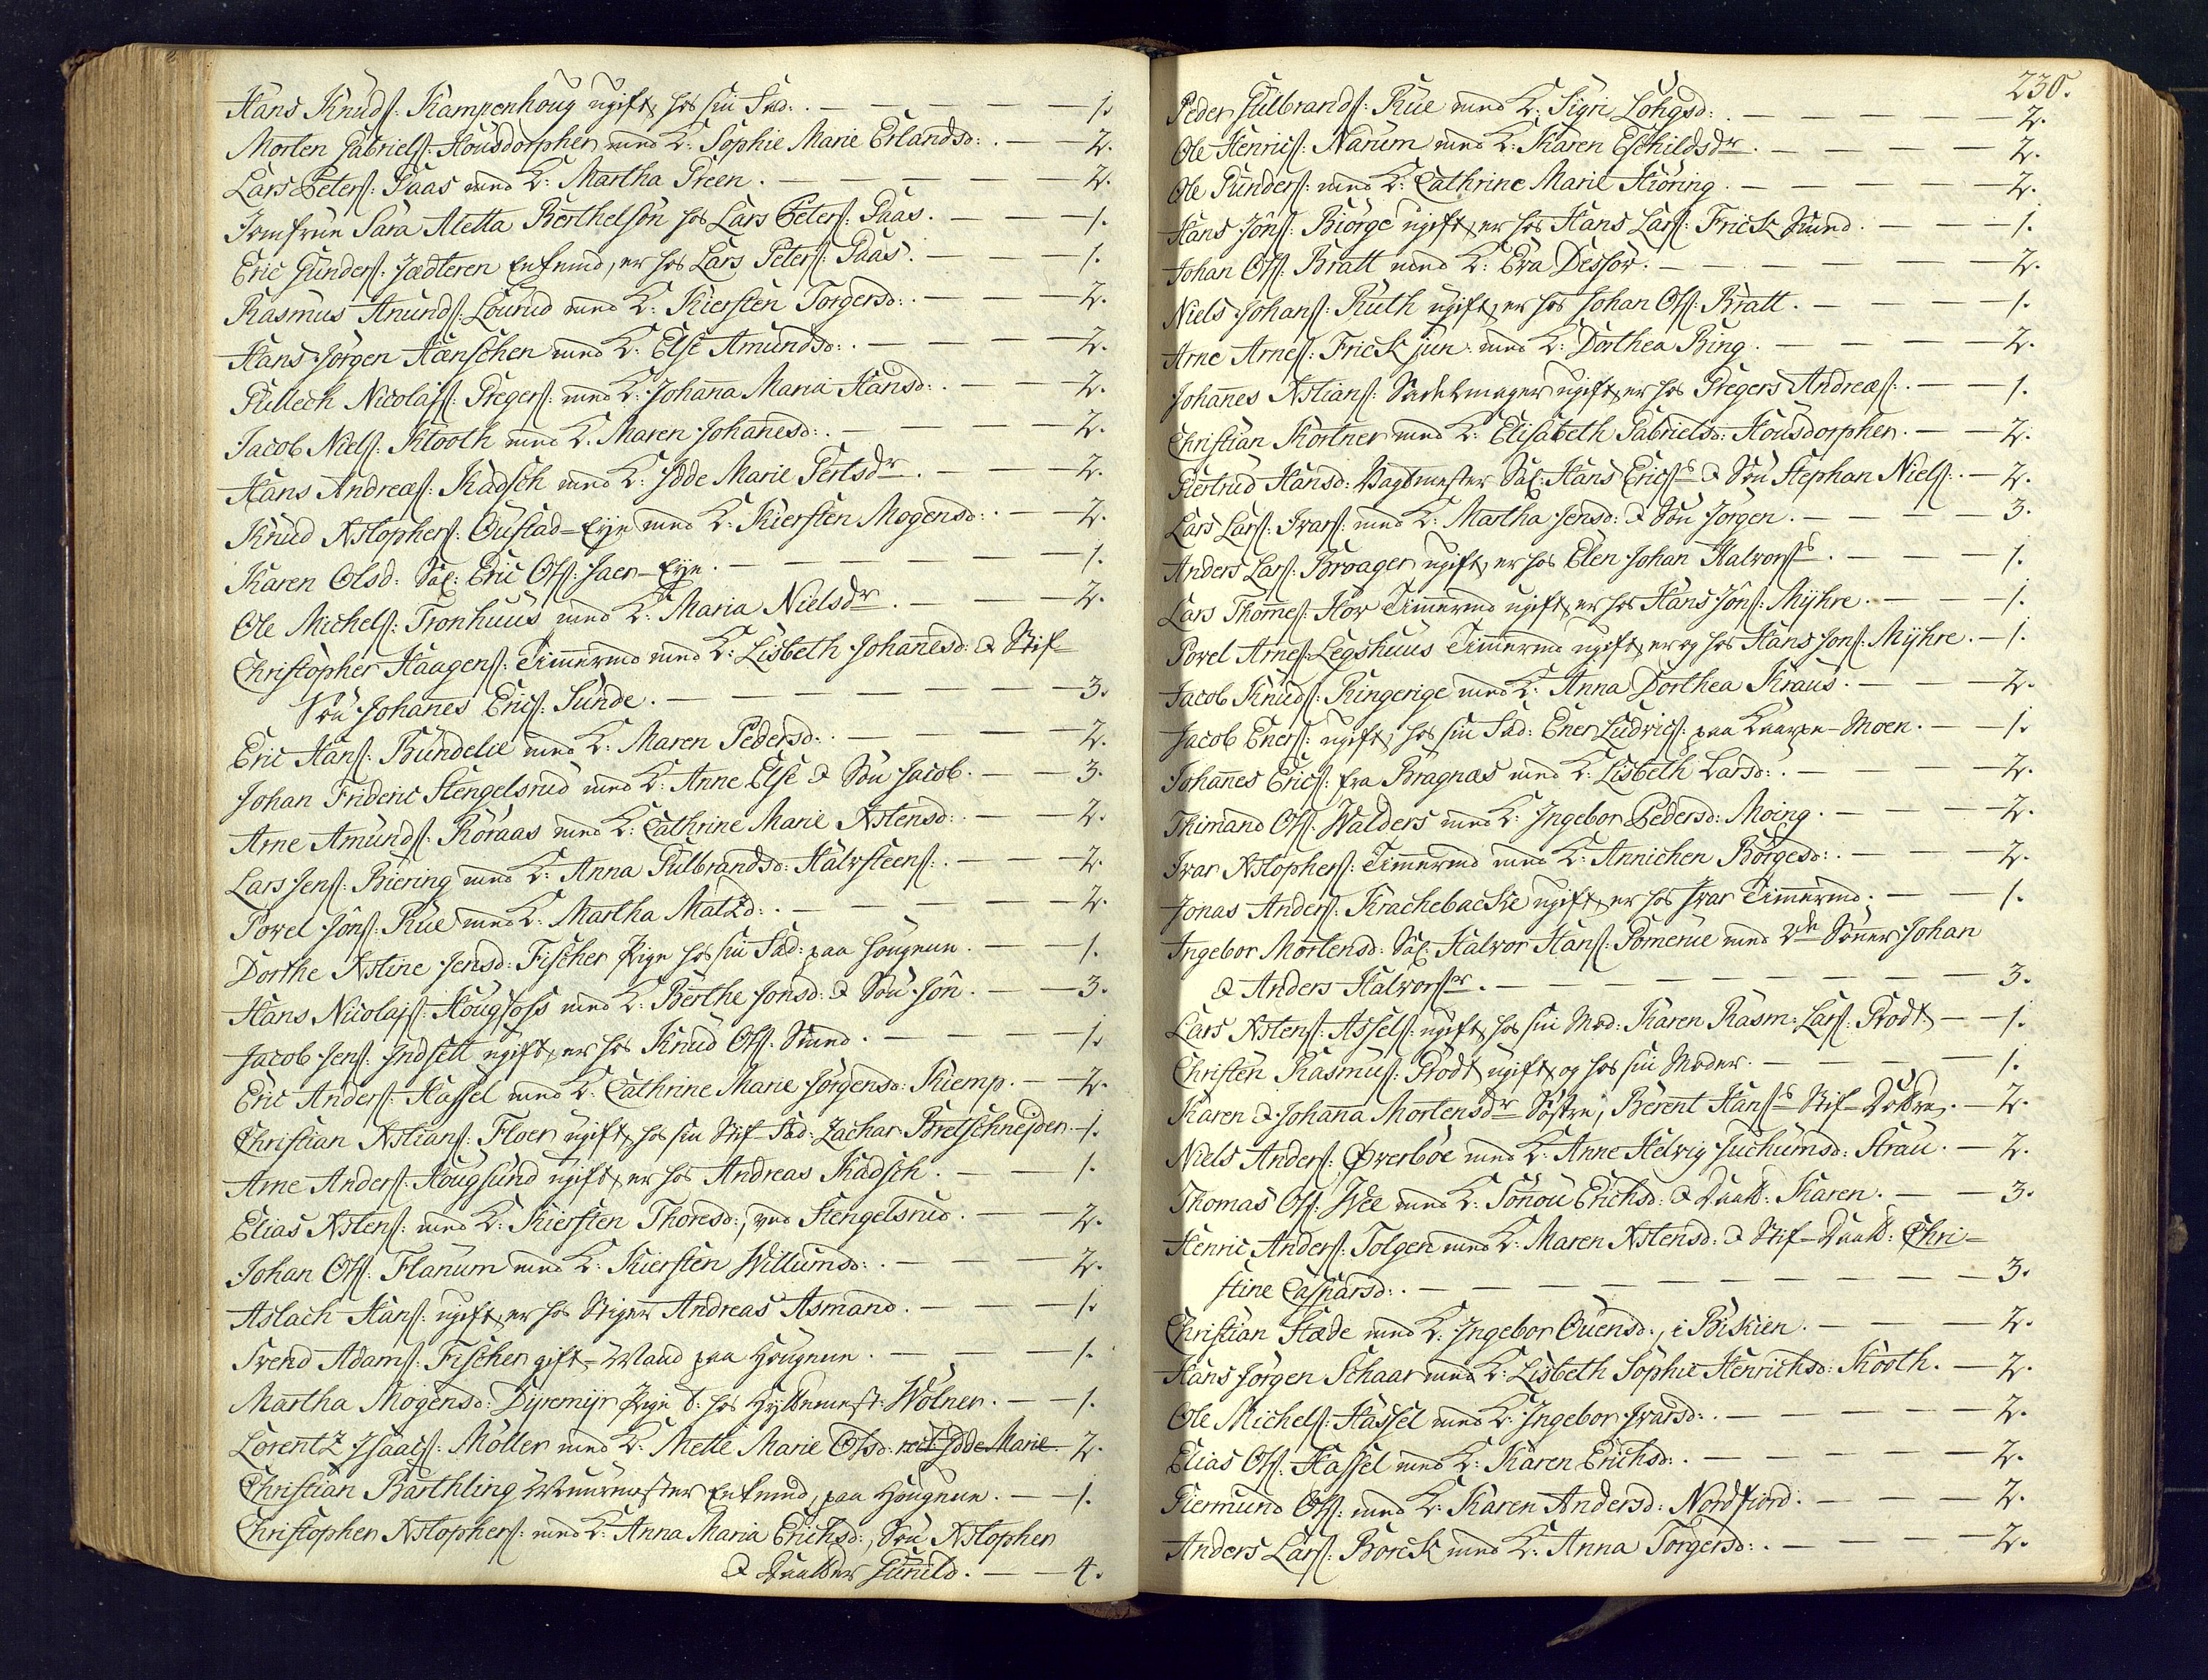 Hans Knuds: Kampenhoug ugift, hos sin Fad: . — — — — — 1.
Morten Gabriels: Housdorpher med K: Sophie Marie Erlandsd: . — — 2.
Lars Peters: Paas med K: Martha Preen . — — — — — 2.
Jomfrue Sara Aletta Berthelson hos Lars Peters: Paas . — — — 1.
Eric Gunders: Jædteren Enkemd, er hos Lars Peters: Paas . — — — 1.
Rasmus Anunds: Lourud med K: Kiersten Torgersd: . — — — 2.
Hans Jørgen Hænschen med K: Else Amundsd: . — — — 2.
Gullech Nicolajs: Gregers: med K: Johana Maria Hansd: . — — — 2.
Jacob Niels: Klooth med K: Maren Johanesd: . — — — 2.
Hans Andreæs: Kadsch med K: Idde Marie Gertsdr . — — — 2.
Knud Xstophers: Oustad-Eje med K: Kiersten Mogensd: . — — 2.
Karen Olsd: Sal: Eric Ols: Jaer-Eje . — — — — — 1.
Ole Michels: Tronhuus med K: Maria Nielsdr . — — — 2.
Christopher Haagens: Timermd med K: Lisbeth Johanesd: & Stif-
Søn Johanes Erics: Sunde . — — — — — — — 3.
Eric Hans: Bundelie med K: Maren Pedersd: . — — — — 2.
Johan Frideric Stengelsrud med K: Anne Else & Søn Jacob . — — 3.
Arne Amunds: Røraas med K: Cathrine Marie Xstensd: . — — 2.
Lars Jens: Biering med K: Anna Gulbrandsd: Halvsteens: . — — — 2.
Povel Jøns: Rue med K: Martha Matzd: . — — — — — 2.
Dorthe Xstine Jensd: Fischer Pige hos sin Fad: paa Hougene . — — 1.
Hans Nicolajs: Hougfoss med K: Berthe Jonsd: & Søn Jøn . — — 3.
Jacob Jens: Indsett ugift, er hos Knud Ols: Smed . — — — — 1.
Eric Anders: Hassel med K: Cathrine Marie Jørgensd: Kiemp . — 2.
Christian Xstians: Floer ugift, hos sin Stif-Fad: Zachar: Bretschneider . — 1.
Arne Anders: Hougsund ugift, er hos Andreas Kadsch . — — — 1.
Elias Xstens: med K: Kiersten Thoresd:, ved Stengelsrud . — — — 2.
Johan Ols: Flanum med K: Kiersten Willumsd: . — — — 2.
Aslach Hans: ugift, er hos Stiger Andreas Asmand . — — — 1.
Svend Adams: Fischer gift-Mand paa Hougene . — — — — 1.
Martha Mogensd: Dyremyr Pige t: hos Hyttemest: Wølner . — — 1.
Lorentz Isaacs: Møller med K: Mette Marie Olsd: Idde Marie — 2.
Christian Barthling Muurmester Enkemd, paa Hougene . — — 1.
Christopher Xstophers: med K: Anna Maria Erichsd:, Søn Xstopher
& Daatter Gunild . — — 4.
230.
Peder Gulbrands: Rue med K: Sigri Lohgsd: . — — — — — 2.
Ole Henrics: Narum med K: Karen Eschildsdr . — — — — 2.
Ole Gunders: med K: Cathrine Marie Kiøring . — — — — — 2.
Hans Jøns: Biørge ugift, er hos Hans Lars: Frick Smed . — — — 1.
Johan Ols: Bratt med K: Eva Dessor . — — — — — 2.
Niels Johans: Ruth ugift, er hos Johan Ols: Bratt . — — — — 1.
Arne Arnes: Frick jun: med K: Dorthea Bing . — — — — 2.
Johanes Xstians: Sadelmager ugift, er hos Gregers Andreæs: . — — 1.
Christian Kortner med K: Elisabeth Gabrielsd: Housdorpher . — — 2.
Giertrud Hansd: Vagtmester Sal: Hans Ericss & Søn Stephan Niels: . — 2.
Lars Lars: Ivars: med K: Martha Jensd: & Søn Jørgen . — — — — 3.
Anders Lars: Broager ugift, er hos Elen Johan Halvorss . — — — 1.
Lars Thomes: Hov Timermd ugift, er hos Hans Jøns: Myhre . — — — 1.
Povel Arnes: Legshuus Timermd ugift, er og hos Hans Jøns: Myhre . — 1.
Jacob Knuds: Ringerige med K: Anna Dorthea Kraus . — — — 2.
Jacob Eners: ugift, hos sin Fad: Ener Ludvics: paa Knarpe-Moen . — — 1.
Johanes Erics: fra Bragnæs med K: Lisbeth Larsd: . — — — — 2.
Thimand Ols: Walders med K: Ingebor Pedersd: Moing . — — — — 2.
Ivar Xstophers: Timermd med K: Annichen Børgesd: . — — — — 2.
Jonas Anders: Krachebacke ugift, er hos Ivar Timermd . — — — 1.
Ingebor Mortensd: Sal: Halvor Hans: Pomerue med 2de Sønner Johan
& Anders Halvorssr . — — — — — — — — 3.
Lars Xstens: Assels: ugift, hos sin Mod: Karen Rasm: Lars: Grodt — — 1.
Christen Rasmus: Grodt ugift, og hos sin Moder . — — — — 1.
Karen & Johana Mortensdr Søstre, Berent Hanss Stif-Døttre . — 2.
Niels Anders: Øverbøe med K: Anne Helvig Juchumsd: Strau . — 2.
Thomas Ols: Wee med K: Tonou Erichsd: & Daatt: Karen . — — 3.
Henric Anders: Tolgen med K: Maren Xstensd: & Stif-Daatt: Chri-
stine Caspersd: . — — — — — — — — — 3.
Christian Stæde med K: Ingebor Ouensd:, i Biskien . — — — 2.
Hans Jørgen Schaar med K: Lisbeth Sophie Henrichsd: Kooth . — 2.
Ole Michels: Hassel med K: Ingebor Ivarsd: . — — — — — 2.
Elias Ols: Hassel med K: Karen Erichsd: . — — — — — 2.
Giermund Ols: med K: Karen Andersd: Nordfiord . — — — — 2.
Anders Lars: Borck med K: Anna Torgersd: . — — — — 2.